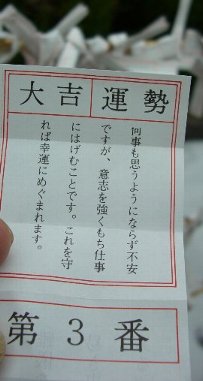 大吉 運勢
何事も思うようにならず不安
ですが、意志を強くもち仕事
にはげむことです。これを守
れば幸運にめぐまれます。
第3番